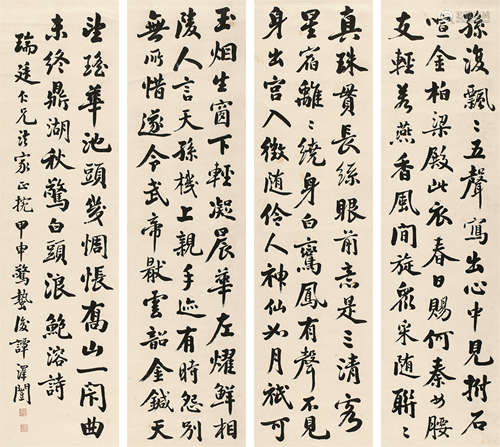 孫復飄〻五聲寫出心中見拊石
喧金柏梁殿此衣春日賜何秦女腰
支輕若燕香風間旋眾采随聯〻
真珠貫長絲眼前意是三清客
星宿離〻繞身白鸞鳳有聲不見
身出宮入徵随伶人神仙如月祇可
玉烟生窗下輕凝晨華左耀鮮相
陵人言天孫機上親手迹有時怨別
無所惜遂令武帝厭雲韶金鍼天
望瑤華池頭幾惆悵喬山一閉曲
未終鼎湖秋驚白頭浪鮑溶詩
瑞廷仁兄法家正擥甲申驚蟄後譚澤闓